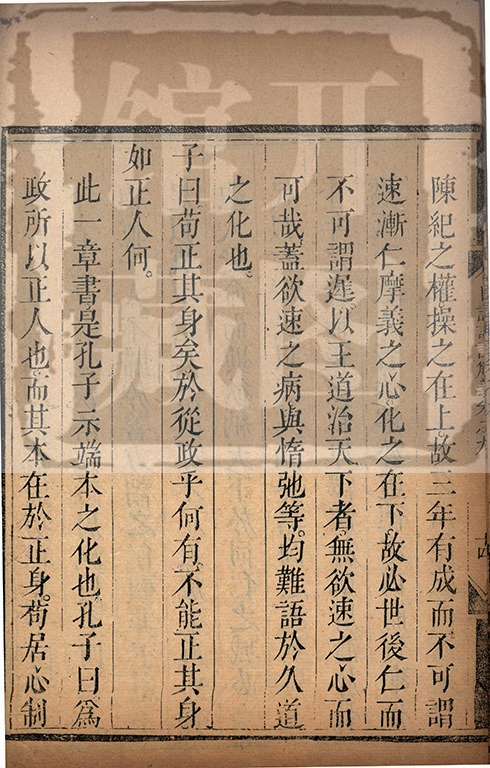 陳紀之權操之在上故三年有成而不可謂
速漸仁摩義之心化之在下故必世後仁而
不可謂遲以王道治天下者無欲速之心而
可哉蓋欲速之病與惰弛等均難語於久道
之化也
子曰苟正其身矣於從政乎何有不能正其身
如正人何。
此一章書是孔子示端本之化也孔子曰爲
政所以正人也而其本在於正身苟居心制